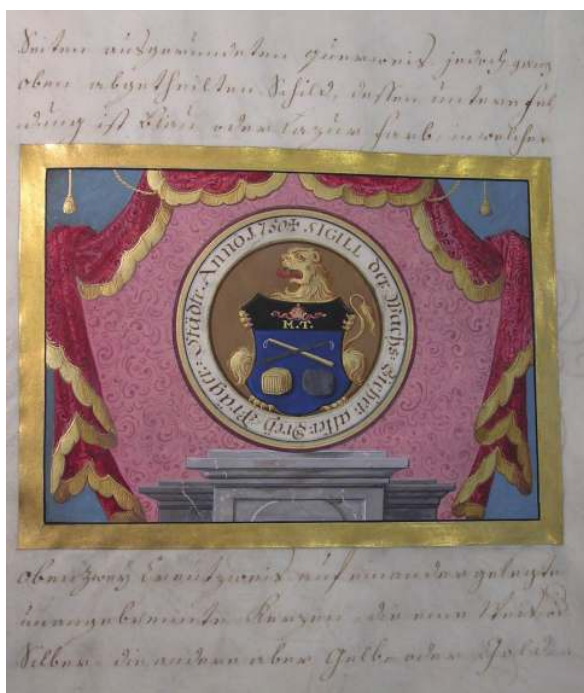 Seiten ausgerundeten querweis jedoch ganz
oben abgetheilten Schild, dessen untere Fel-
dung ist Blau oder Lazur farb, in welcher
SIGILL der Wachs-Zieher aller Dreÿ Prager-Städte. Anno 1750
M.T.
oben zweÿ Creutzweis auf einander gelegte
unangebrennte Kerzen, die eine Weis od
Silber, die andere aber Gelb oder Golden